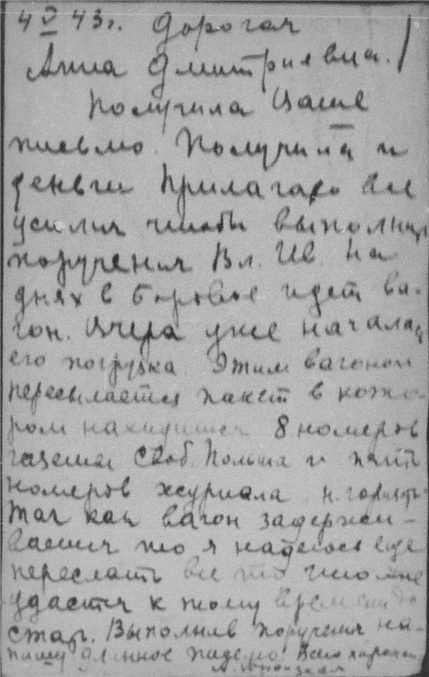 4 V 43 г. Дорогая
Анна Дмитриевна.
Получила Ваше
письмо. Получила и
деньги Прилагаю все
усилия чтобы выполнить
поручения Вл. Ив. На
днях в Боровое идет ва-
гон. Вчера уже началась
его погрузка. Этим вагоном
пересылается пакет в кото-
ром находится 8 номеров
газеты Своб. Польша и пять
номеров журнала н. горизонты
Так как вагон задержи-
вается то я надеюсь еще
переслать все то что мне
удастся к тому времени до
стать. Выполнив поручения на-
пишу длинное письмо. Всего хорошего